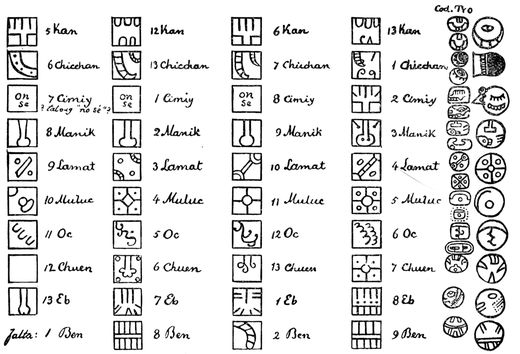 Cod. Tro
5 Kan 12 Kan 6 Kan 13 Kan
6 Chicchan 13 Chicchan 7 Chicchan 1 Chicchan
on se 7 Cimiy on se 1 Cimiy on se 8 Cimiy 2 Cimiy
"no sé"?
8 Manik 2 Manik 9 Manik 3 Manik
9 Lamat 3 Lamat 10 Lamat 4 Lamat
10 Muluc 4 Muluc 11 Muluc 5 Muluc
11 Oc 5 Oc 12 Oc 6 Oc
12 Chuen 6 Chuen 13 Chuen 7 Chuen
13 Eb 7 Eb 1 Eb 8 Eb
falta: 1 Ben 8 Ben 2 Ben 9 Ben